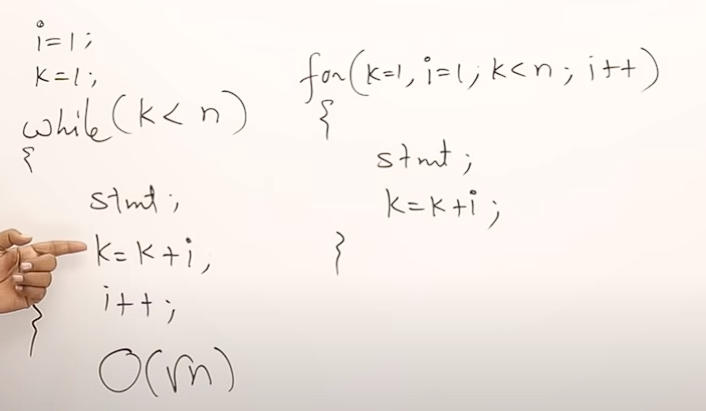 i=1;
k=1;
while(k<n)
{
stmt;
k=k+i,
i++;
}
O(√n)
for(k=1,i=1;k<n;i++)
{
stmt;
k=k+i;
}